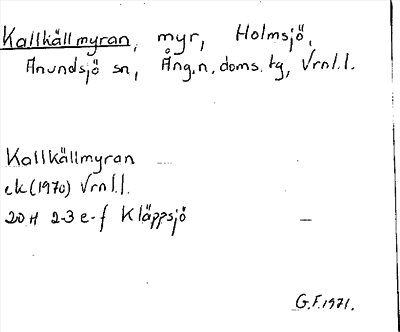 Kallkällmyran, myr, Holmsjö,
Anundsjö sn, Ång.n. doms. tg, Vrnl.l.
Kallkällmyran
ek (1970) Vrnl.l.
20H 2-3 e-f Kläppsjö —
G.F. 1971.